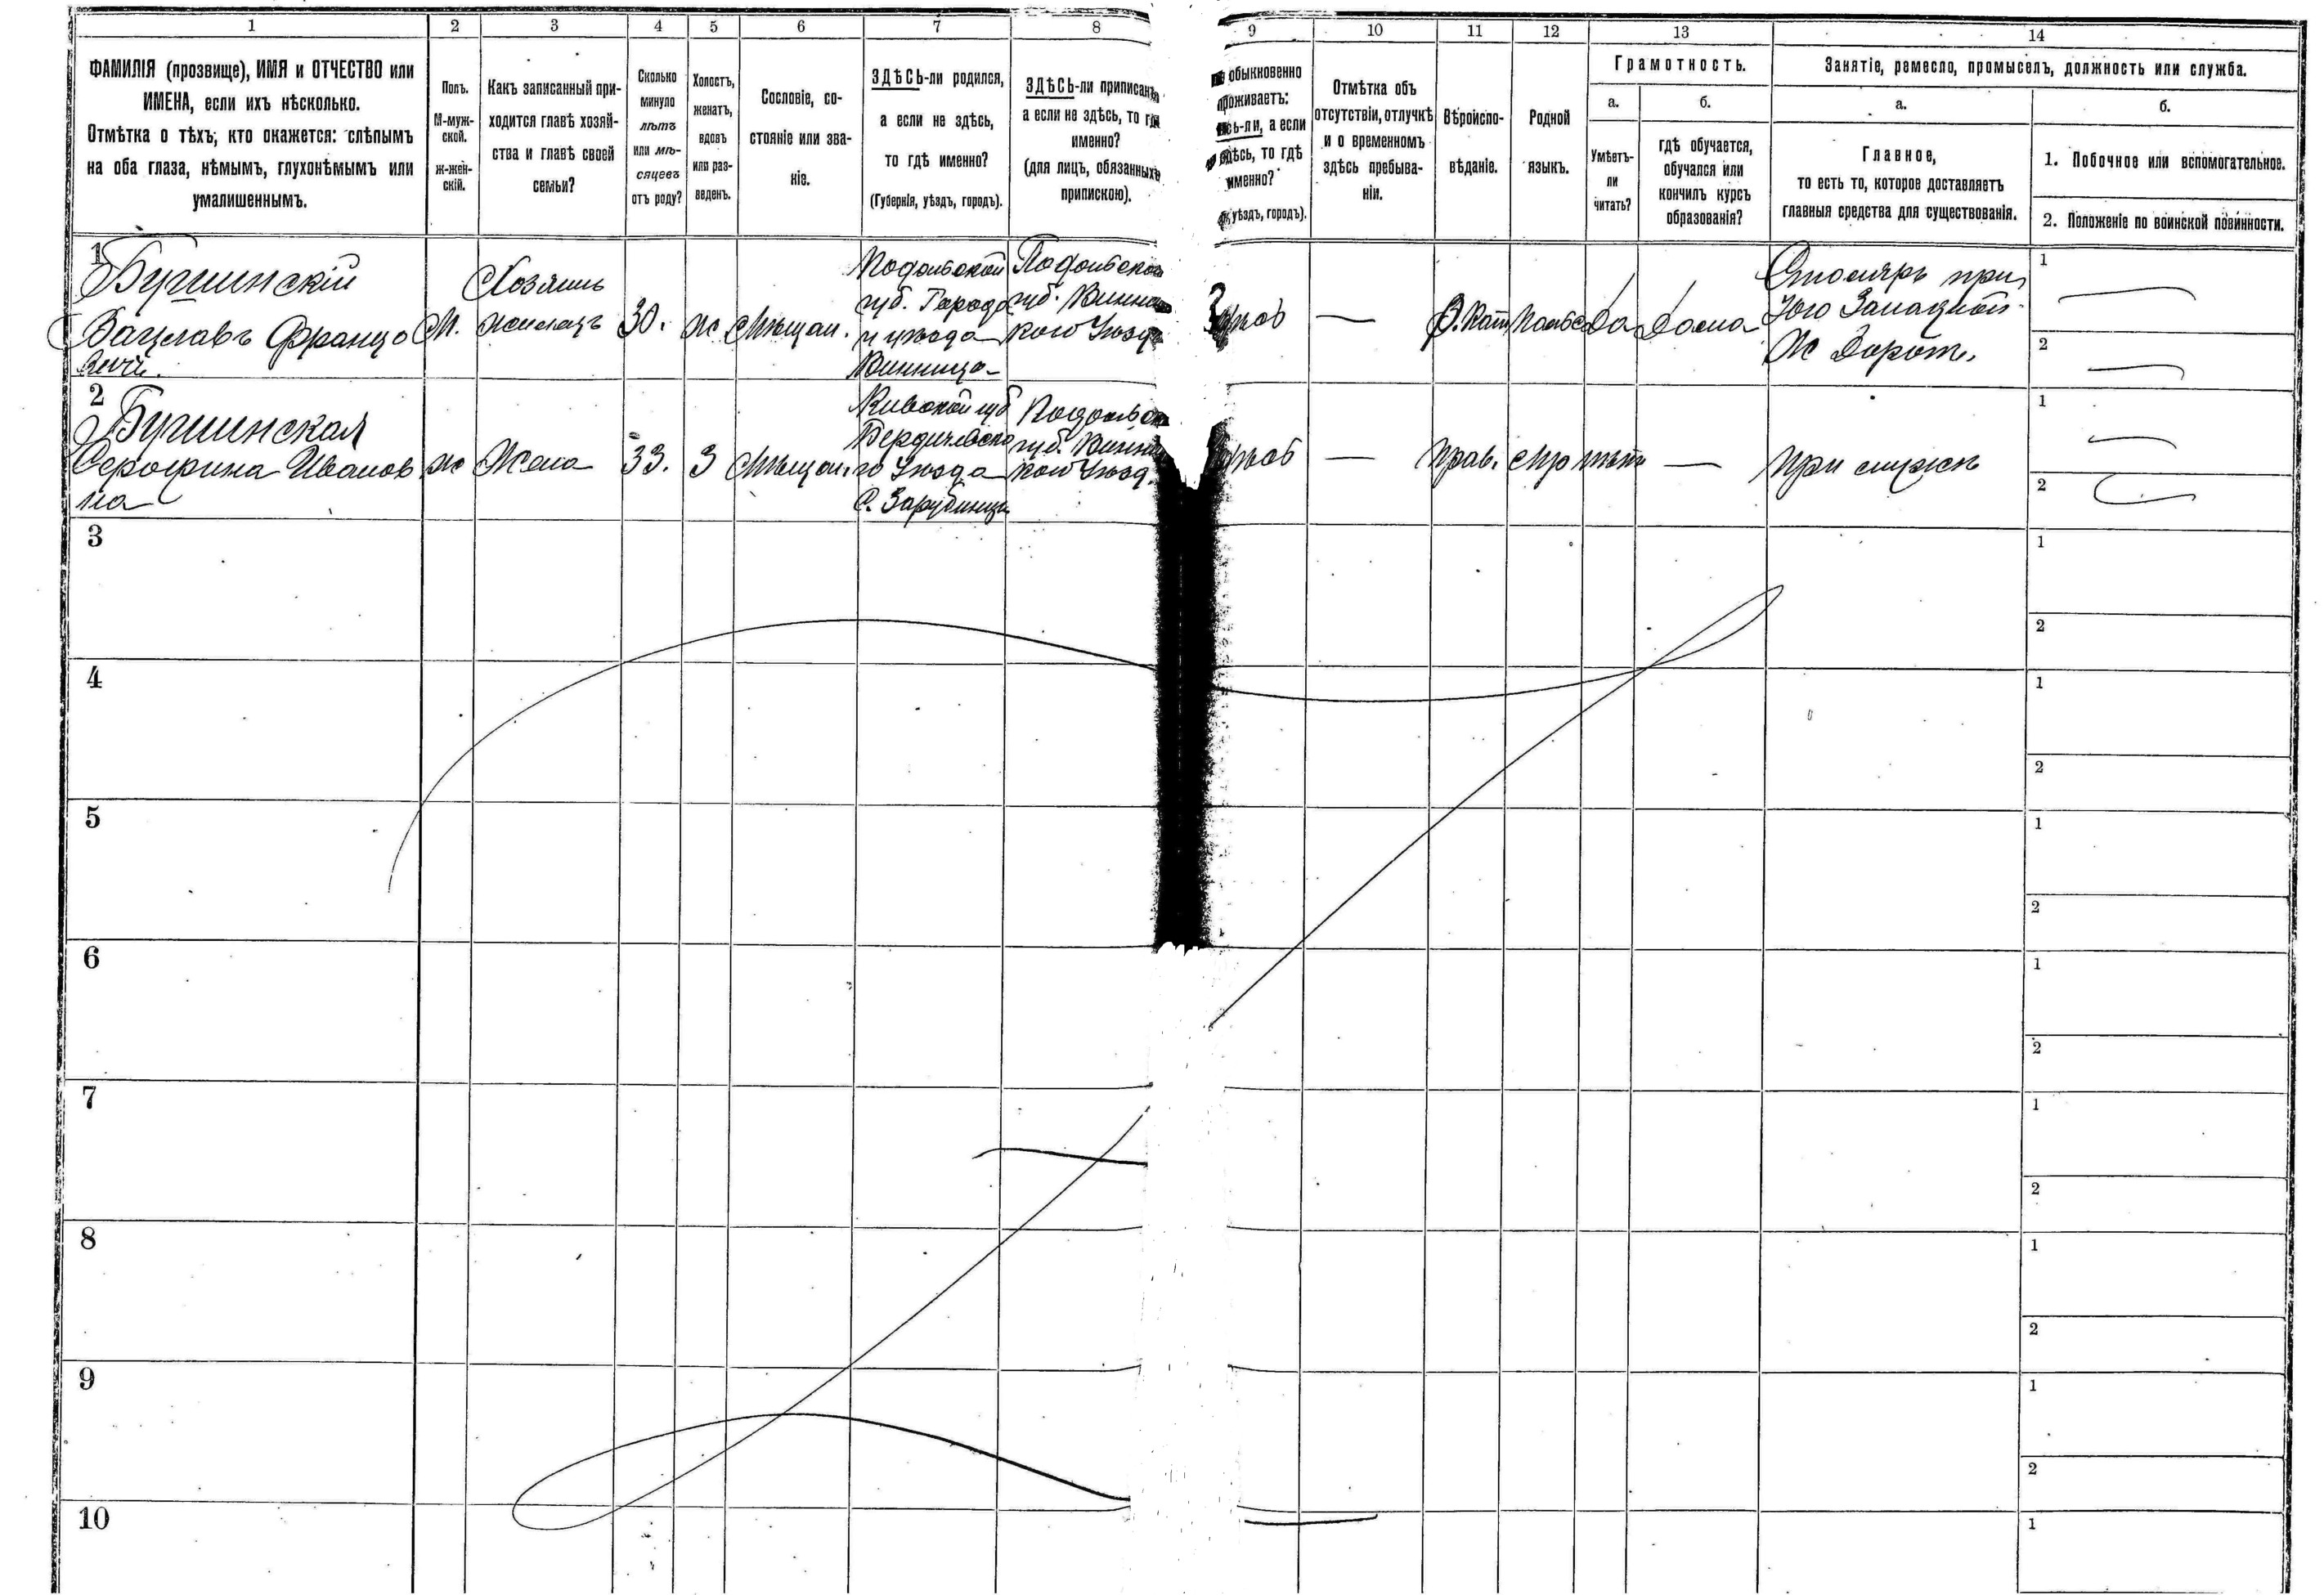 1
2
3
4
5
6
7
8
9
10
11
12
13
14
ФАМИЛІЯ (прозвище), ИМЯ и ОТЧЕСТВО или
ИМЕНА, если ихъ нѣсколько.
Отмѣтка о тѣхъ, кто окажется: слѣпымъ
на оба глаза, нѣмымъ, глухонѣмымъ или
умалишеннымъ.
Полъ.
М-муж-
ской.
ж-жен-
скій.
Какъ записанный при-
ходится главѣ хозяй-
ства и главѣ своей
семьи?
Сколько
минуло
лѣтъ
или мѣ-
сяцевъ
отъ роду?
Холостъ,
женатъ,
вдовъ
или раз-
веденъ.
Сословіе, со-
стояніе или зва-
ніе.
ЗДѢСЬ-ли родился,
а если не здѣсь,
то гдѣ именно?
(Губернія, уѣздъ, городъ).
ЗДѢСЬ-ли приписанъ,
а если не здѣсь, то гдѣ
именно?
(для лицъ, обязанныхъ
припискою).
обыкновенно
проживаетъ:
а если
то гдѣ
именно?
уѣздъ, городъ).
Отмѣтка объ
отсутствіи, отлучкѣ
и о временномъ
здѣсь пребыва-
ніи.
Вѣроиспо-
вѣданіе.
Родной
языкъ.
Грамотность.
а.
Умѣетъ-
ли
читать?
б.
гдѣ обучается,
обучался или
кончилъ курсъ
образованія?
Занятіе, ремесло, промыселъ, должность или служба.
а.
Главное,
то есть то, которое доставляетъ
главныя средства для существованія.
б.
1. Побочное или вспомогательное.
2. Положеніе по воинской повинности.
1
Вацлавъ Францо
вичъ.
М.
Хозяинъ
30.
ж
Мѣщан.
Подольской
губ. Города
и уѣзда
Винница
Подольской
губ.
кого Уѣзда
—
Р. Кат
Да
Дома
Столяръ при
Юго Западной
Ж Дорог.
1
2
2
Серафима Иванов
на
ж
Жена
33.
З
Мѣщан.
Киевской губ
Бердичевска
го Уѣзда
С. Зарубинца
губ.
кого Уѣзд.
—
Прав.
—
При мужѣ
1
2
3
1
2
4
1
2
5
1
2
6
1
2
7
1
2
8
1
2
9
1
2
10
1